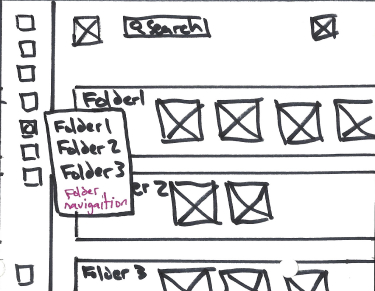 Search
Folder1
Folder1
Folder 2
Folder 3
Folder
navigaition
er 2
Folder 3